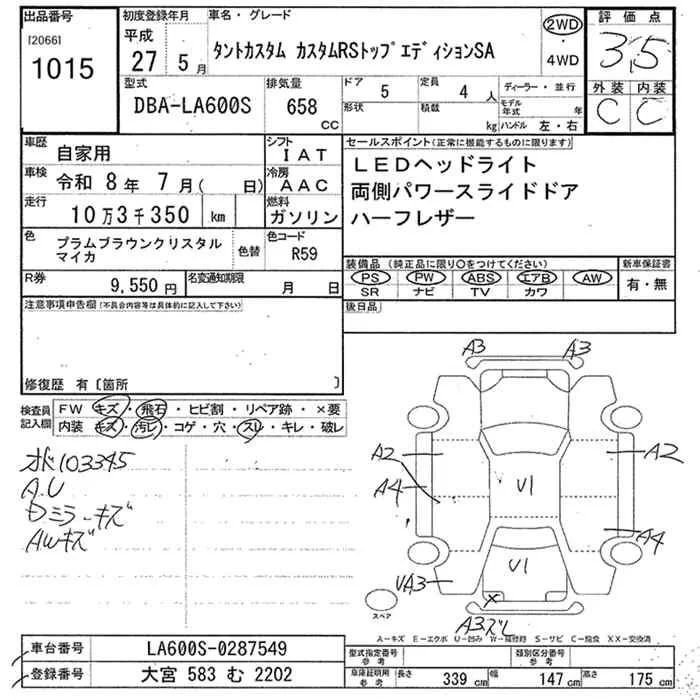 出品番号
[2066]
1015
初度登録年月
平成
27 5 月
車名・グレード
タントカスタム カスタムRSトップエディションSA
2WD
・
4WD
評価点
3.5
外装 内装
C C
型式
DBA-LA600S
排気量
658
CC
ドア
5
定員
4 人
形状
積載
kg
ディーラー・並行
モデル
年式
年
ハンドル 左・右
車歴
自家用
シフト
IAT
車検
令和 8年 7月( 日)
冷房
AAC
走行
10万3千350 km
燃料
ガソリン
色
プラムブラウンクリスタル
マイカ
色替
色コード
R59
R券
9,550 円
名変通知期限
月 日
セールスポイント(正常に機能するものに限ります)
LEDヘッドライト
両側パワースライドドア
ハーフレザー
装備品(純正品に限り○をつけてください)
PS PW ABS エアB AW
SR ナビ TV カワ
新車保証書
有・無
後日品
注意事項申告欄(不具合内容等は具体的に記入して下さい)
修復歴 有〔箇所 〕
検査員
記入欄
FW キズ・飛石・ヒビ割・リペア跡・×要
内装 キズ・汚レ・コゲ・穴・スレ・キレ・破レ
103345
A.U
ミラーキズ
AWキズ
A3 A3
A2 A2
A4 V1
A4
V1
UA3
×
A3ズレ
スペア
A-キズ E-エクボ U-凹み W-補修跡 S-サビ C-腐食 XX-交換済
車台番号
LA600S-0287549
登録番号
大宮 583 む 2202
型式指定番号
参考
類別区分番号
参考
車庫証明用
参考
長さ 339 cm 幅 147 cm 高さ 175 cm